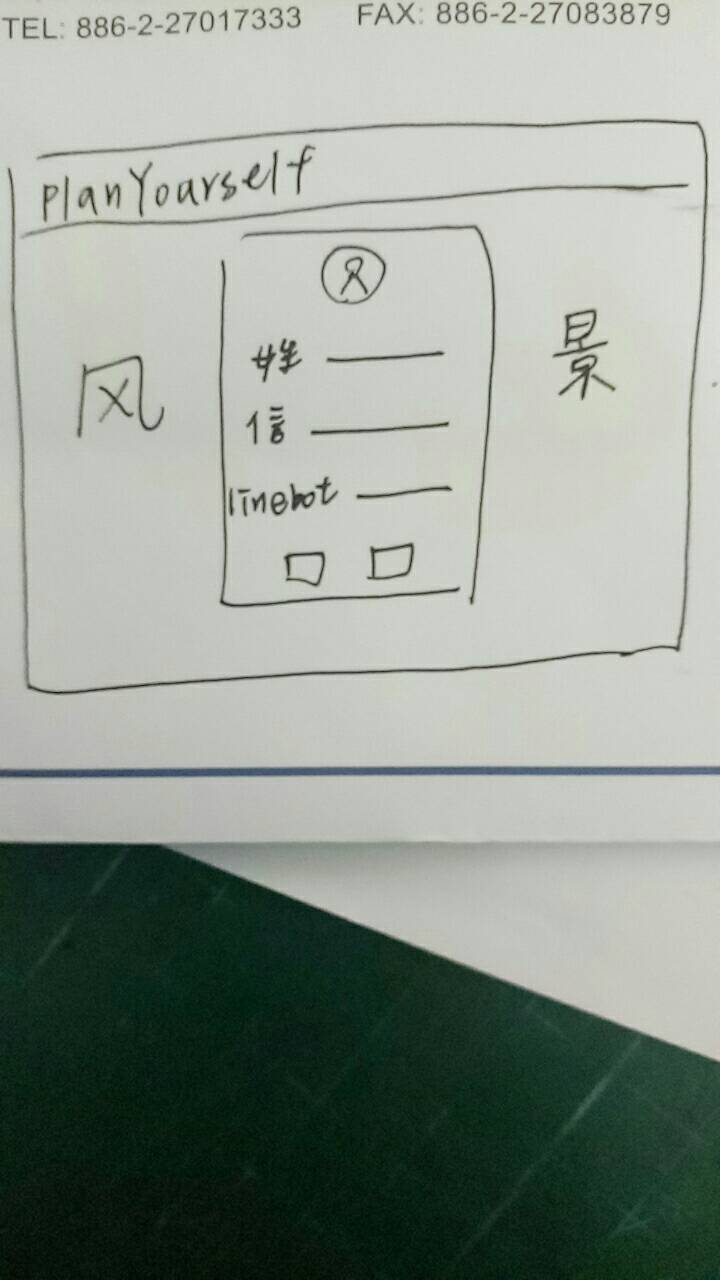 TEL: 886-2-27017333 FAX: 886-2-27083879
PlanYourself
风 景
姓
信
linebot